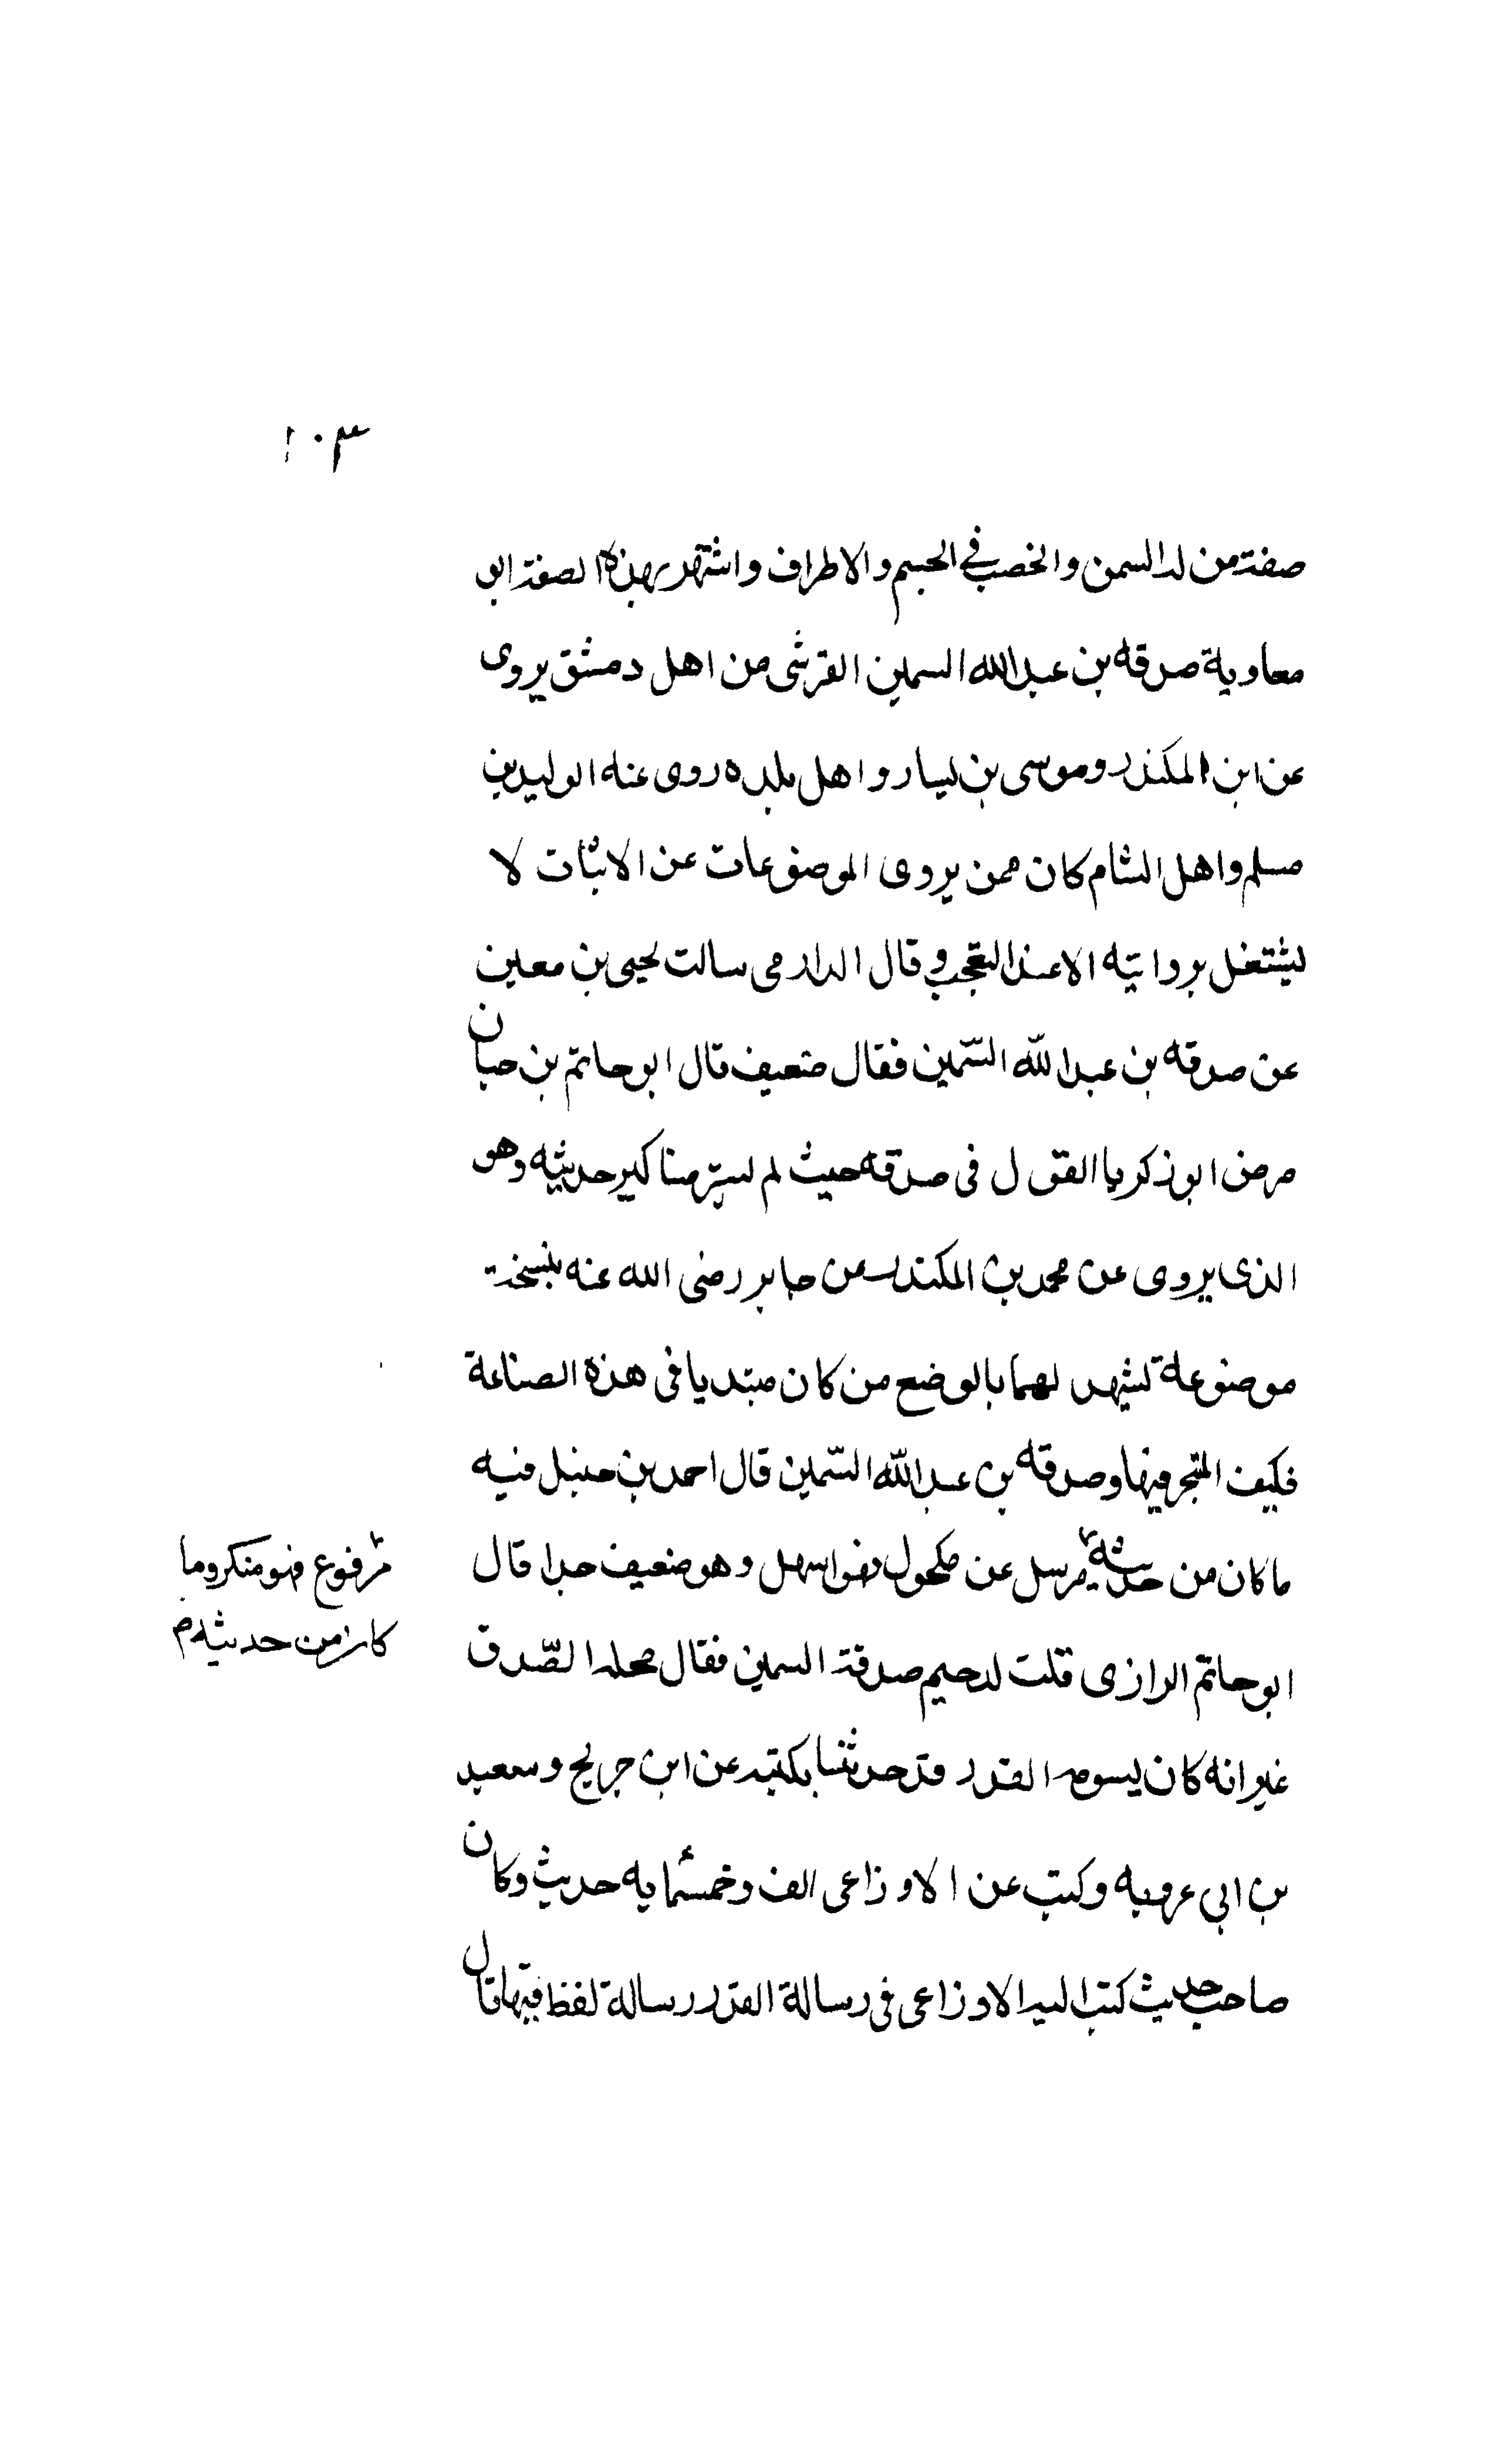 ١٠٣
صفة من له السمن والخصب في الجسم والاطراف واشتهر بهذه الصفة ابو
معاوية صدقه بن عبد الله السمين القرشى من اهل دمشق يروى
عن ابن المكندر وموسى بن يسار واهل بلده روى عنه الوليد بن
مسلم واهل الشام كان ممن يروى الموضوعات عن الاثبات لا
يشتغل بروايته الا عند التعجب وقال الدارمى سالت يحيى بن معين
عن صدقه بن عبد الله السّمين فقال ضعيف قال ابو حاتم بن حبان
مرض ابو زكريا القول فى صدقه حيث لم يسبر مناكير حديثه وهو
الذى يروى عن محمد بن المكندر عن جابر رضى الله عنه بنسخة
موضوعة يشهد لهما بالوضع من كان مبتديا فى هذه الصناعة
فكيف المتبحر فيها وصدقه بن عبد الله السّمين قال احمد بن حنبل فيه
ما كان من حديثه مرسل عن مكحول فهو اسهل وهو ضعيف جدا قال
مرفوع فهو منكر وما
كان من حديثه م
ابو حاتم الرازى قلت لدحيم صدقة السمين فقال محله الصّدق
غير انه كان يسوم القدر قد حدثنا بكتبه عن ابن جريج وسعيد
بن ابى عروبه وكتب عن الاوزاعى الف وخمسمايه حديث وكان
صاحب حديث كتب اليه الاوزاعى فى رسالة القدر رسالة لفظ فيها قال